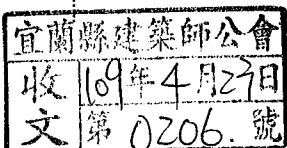 宜蘭縣建築師公會
收文 109年4月23日
第 0206. 號